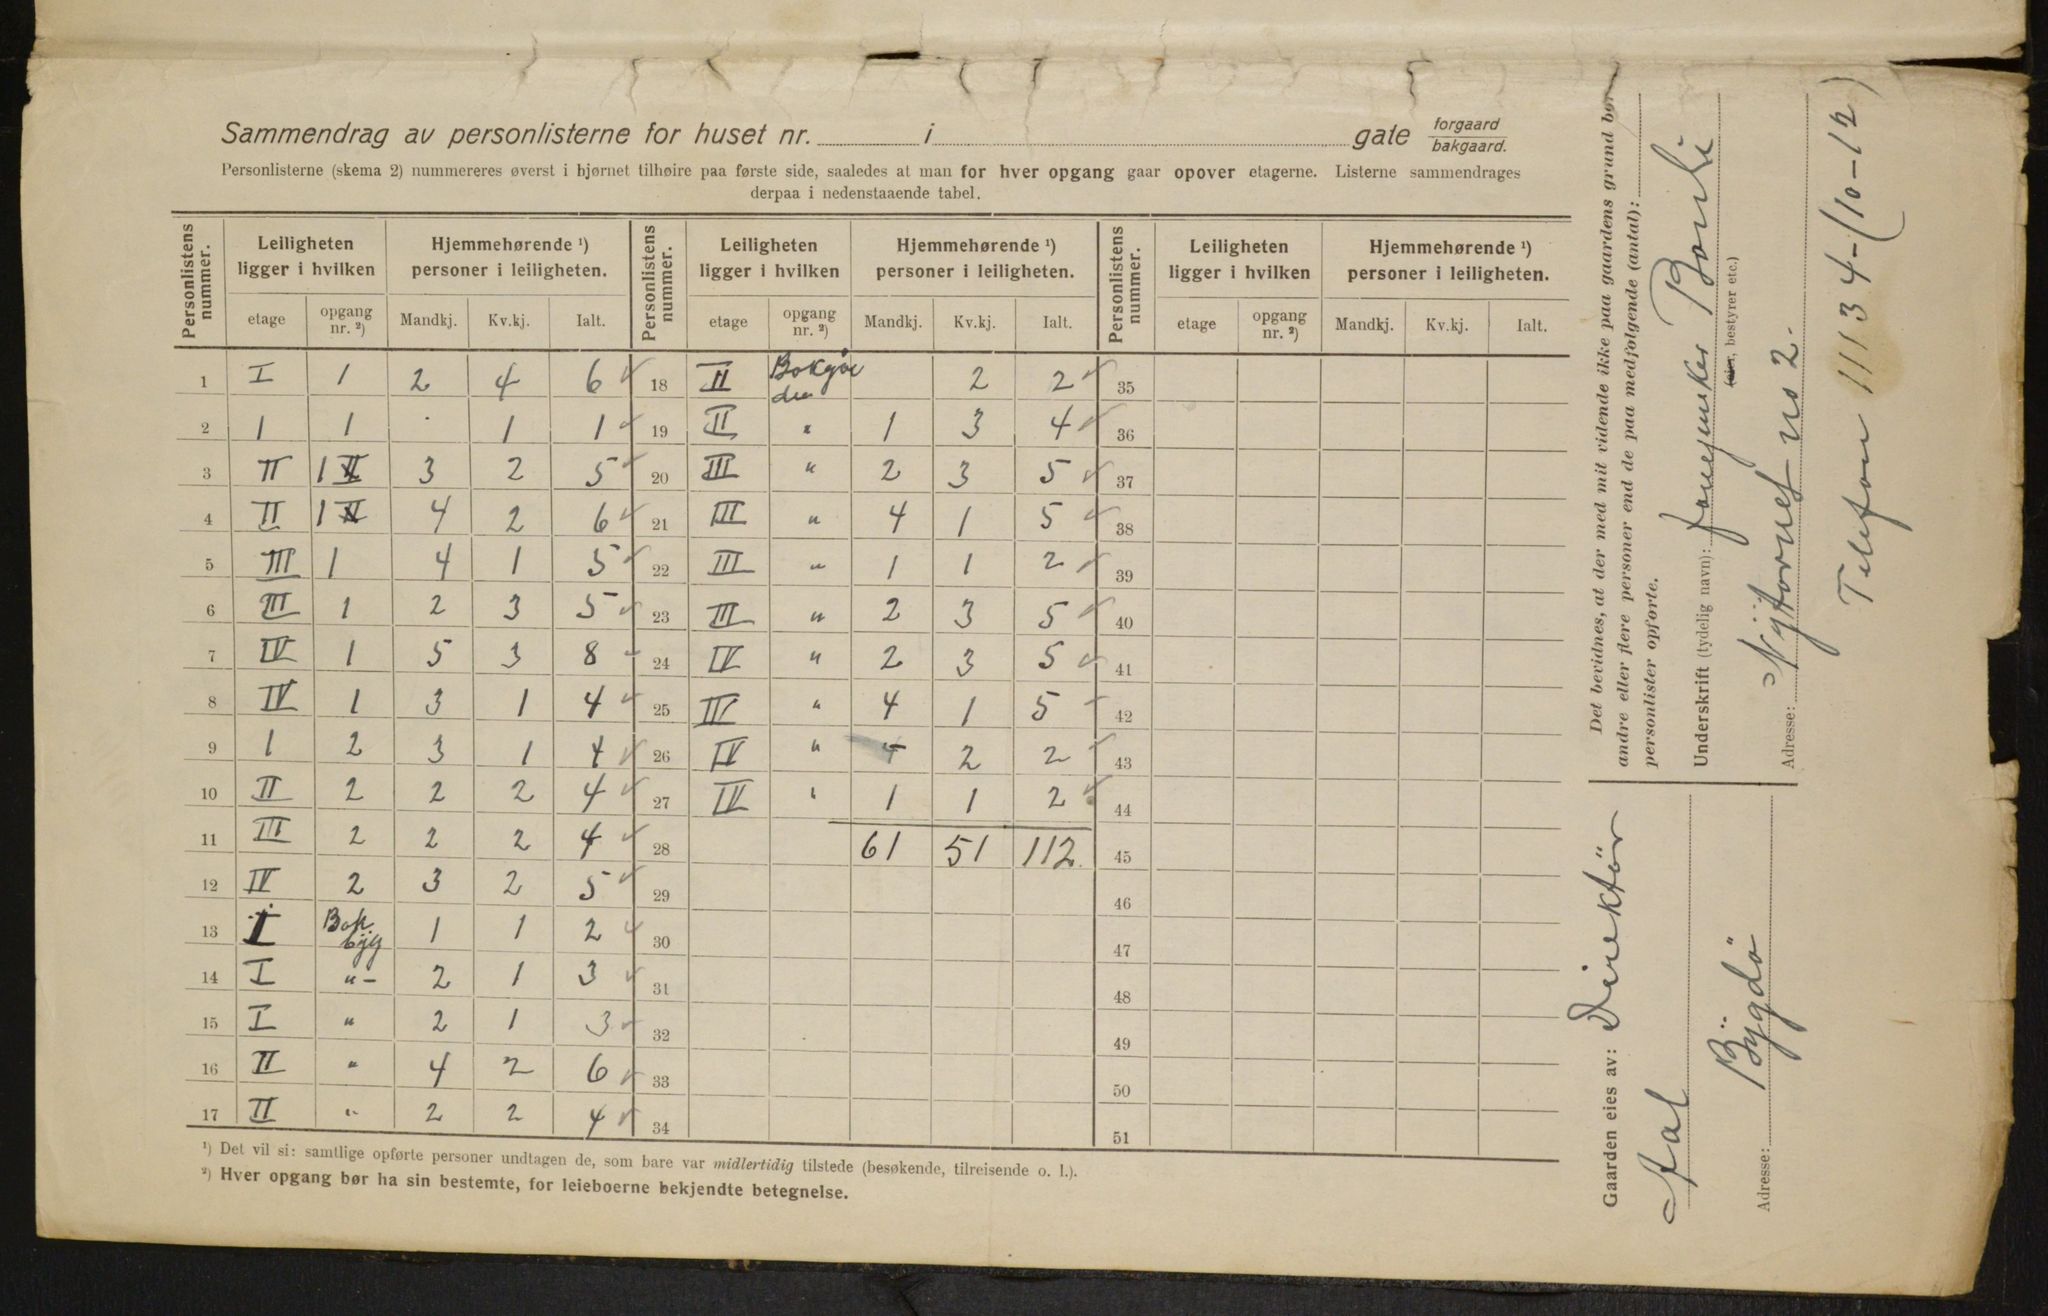 Sammendrag av personlisterne for huset nr. i gate forgaard bakgaard.
Personlisterne (skema 2) nummereres øverst i hjørnet tilhøire paa første side, saaledes at man for hver opgang gaar opover etagerne. Listerne sammendrages
derpaa i nedenstaaende tabel.
Personlistens nummer. Leiligheten ligger i hvilken Hjemmehørende ¹) personer i leiligheten. Personlistens nummer. Leiligheten ligger i hvilken Hjemmehørende ¹) personer i leiligheten. Personlistens nummer. Leiligheten ligger i hvilken Hjemmehørende ¹) personer i leiligheten.
etage opgang nr. ²) Mandkj. Kv.kj. Ialt. etage opgang nr. ²) Mandkj. Kv.kj. Ialt. etage opgang nr. ²) Mandkj. Kv.kj. Ialt.
1 I 1 2 4 6 18 II 2 2 35
2 1 1 . 1 1 19 II " 1 3 4 36
3 II 1 3 2 5 20 III " 2 3 5 37
4 II 1 4 2 6 21 III " 4 1 5 38
5 III 1 4 1 5 22 III " 1 1 2 39
6 III 1 2 3 5 23 III " 2 3 5 40
7 IV 1 5 3 8 24 IV " 2 3 5 41
8 IV 1 3 1 4 25 IV " 4 1 5 42
9 1 2 3 1 4 26 IV " - 2 2 43
10 II 2 2 2 4 27 IV " 1 1 2 44
11 III 2 2 2 4 28 61 51 112. 45
12 IV 2 3 2 5 29 46
13 I Bak byg 1 1 2 30 47
14 I "- 2 1 3 31 48
15 I " 2 1 3 32 49
16 II " 4 2 6 33 50
17 II " 2 2 4 34 51
¹) Det vil si: samtlige opførte personer undtagen de, som bare var midlertidig tilstede (besøkende, tilreisende o. l.).
²) Hver opgang bør ha sin bestemte, for leieboerne bekjendte betegnelse.
Det bevidnes, at der med mit vidende ikke paa gaardens grund bor
andre eller flere personer end de paa medfølgende (antal):
personlister opførte.
Underskrift (tydelig navn):
(eier, bestyrer etc.)
Adresse: Nÿtorvet no 2.
Telefon 11134-(10-12)
Gaarden eies av: Direktör
Adresse: Bÿgdö